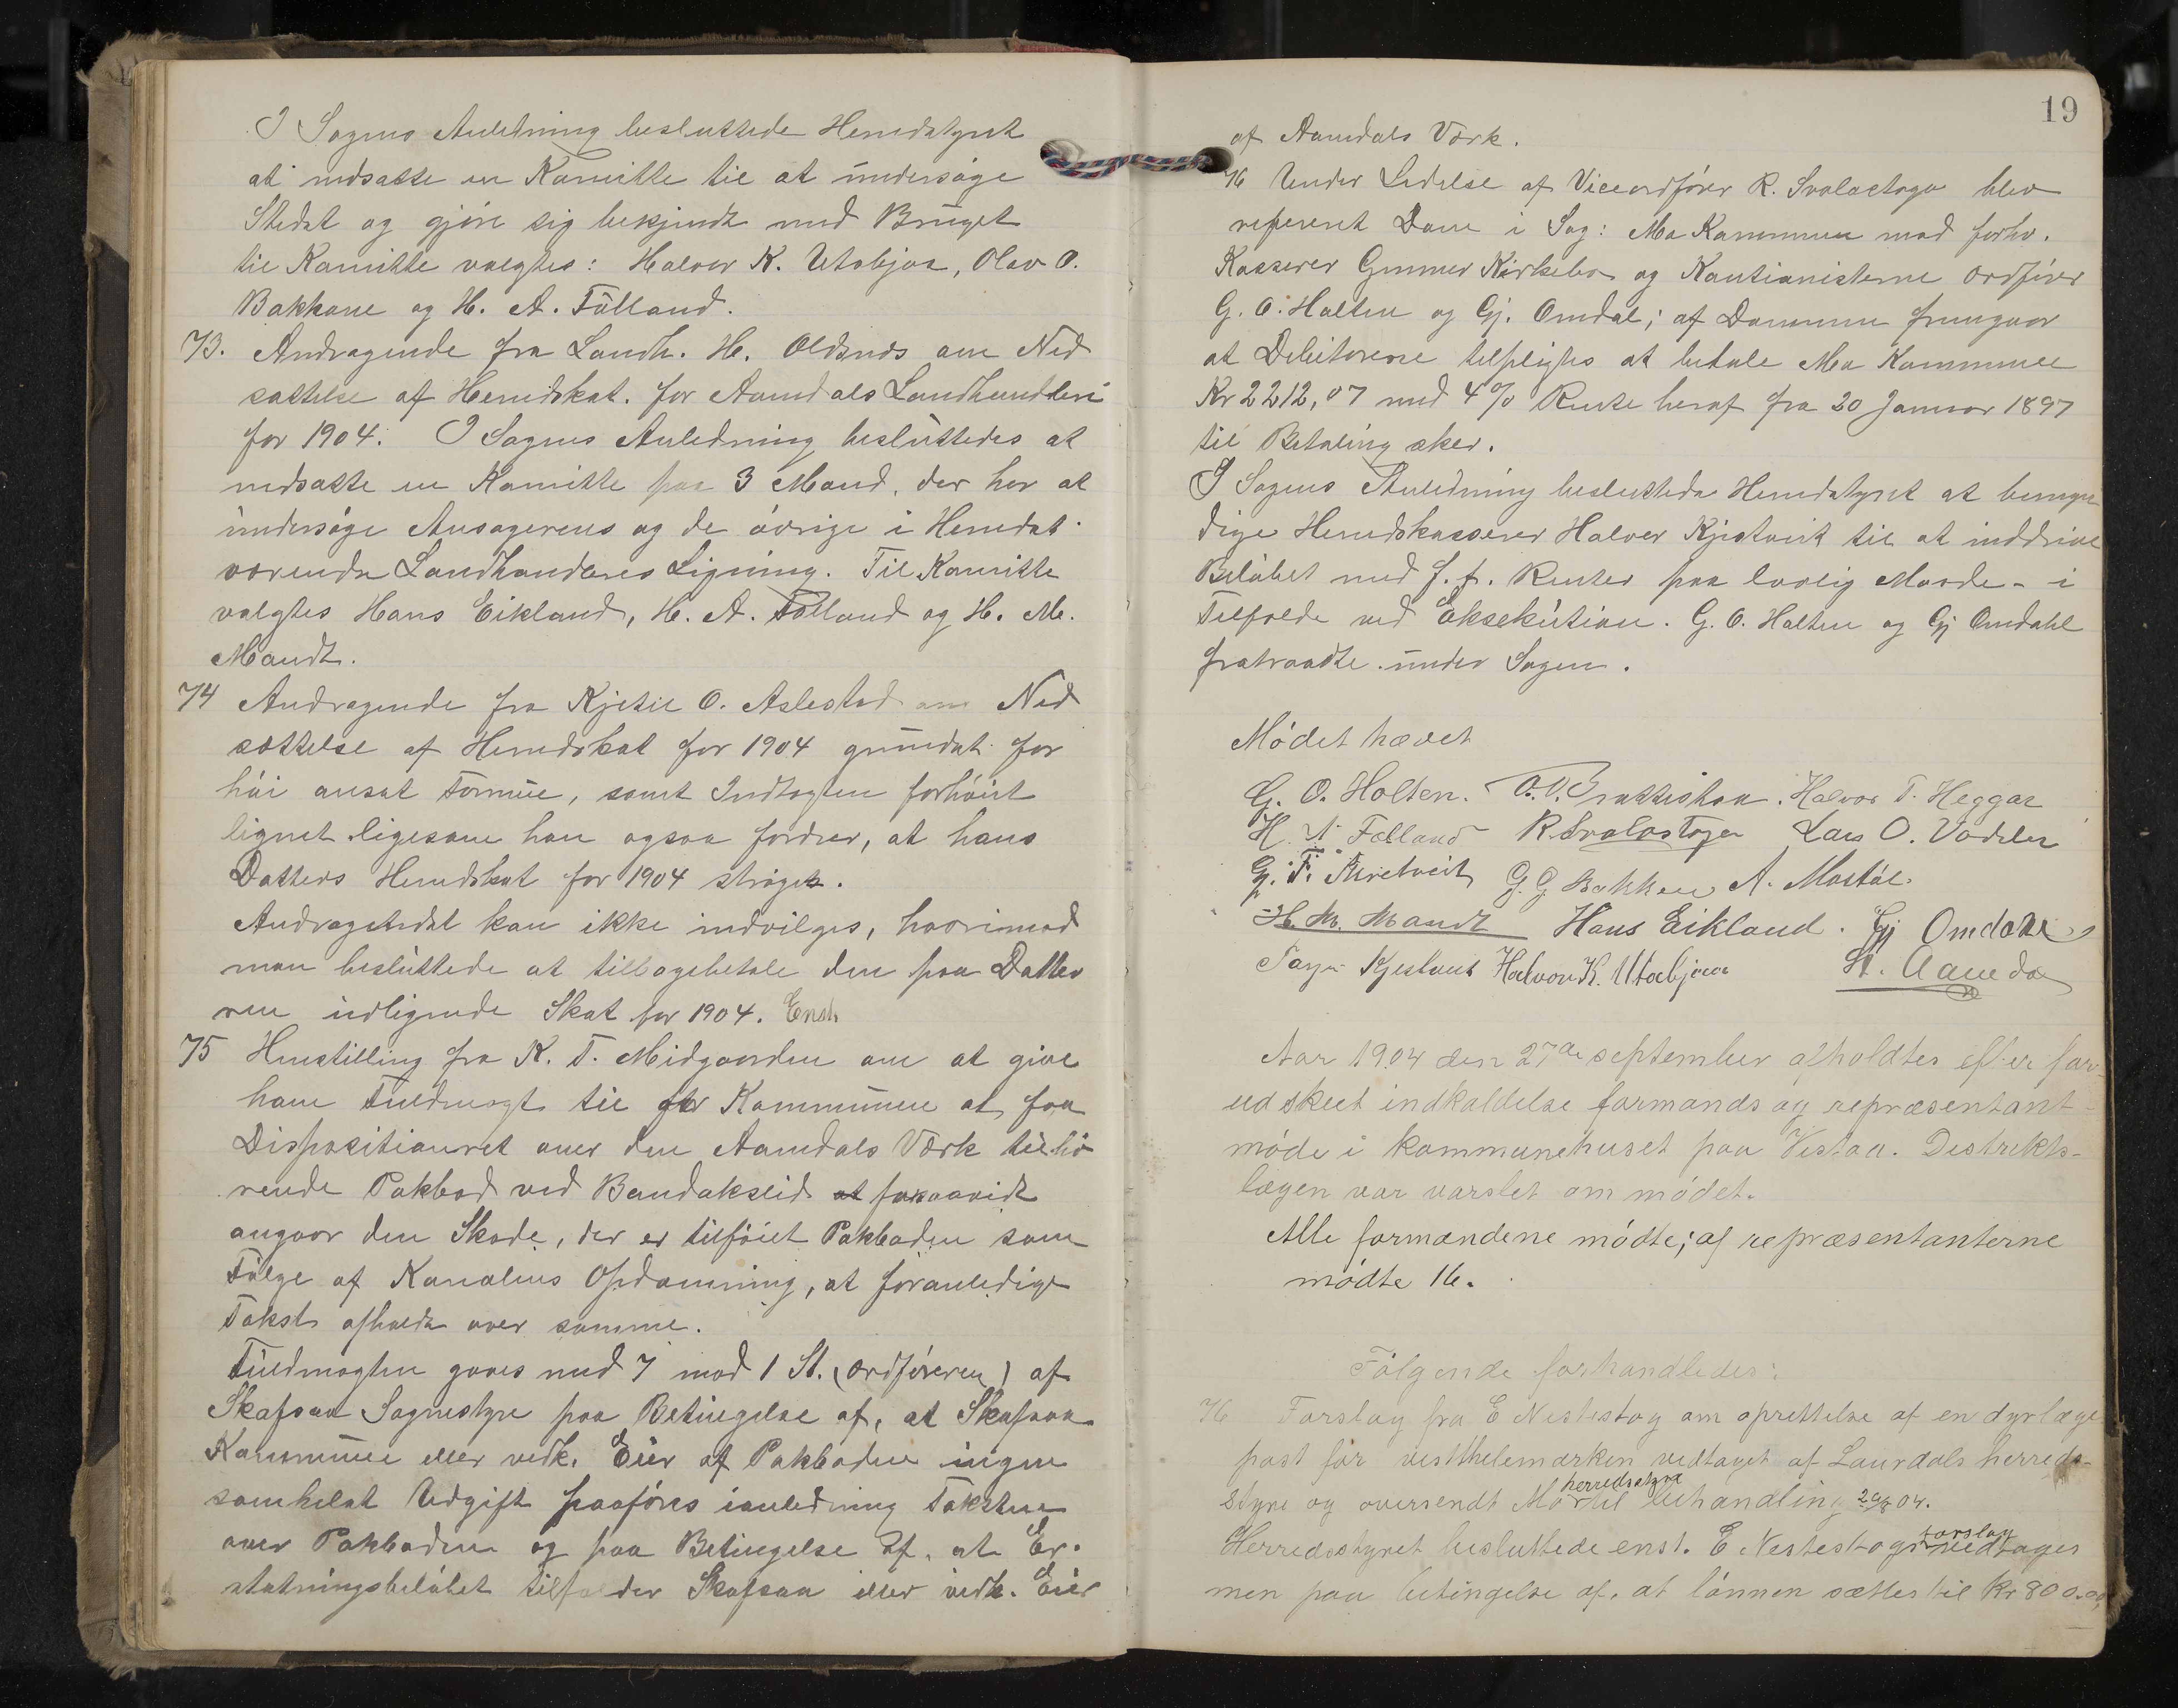 I Sagens Anledning besluttede Herredstyret
at nedsætte en Komitte til at undersøge
Stedet og gjøre sig bekjendt med Bruget
til Komitte valgtes: Halvor K. Utabjoa, Olav O.
Bakkane og H. A. Folland.
73. Andragende fra Landh. H. Oldsnes om Ned
sættelse af Herredskat. for Aamdals Landhandleri
for 1904. I Sagens Anledning besluttedes at
nedsætte en Komitte paa 3 Mand, der har at
undersøge Ansøgerens og de øvrige i Herredet
værende Landhandleres Ligning. Til Komitte
valgtes Hans Eikland, H. A. Folland og H. M.
Mandt.
74 Andragende fra Kjetil O. Aslestad om Ned
sættelse af Herredskat for 1904 grundet for
høi ansat Formue, samt Indtægten forhøiet
lignet ligesom han ogsaa fordrer, at hans
Datters Herredskat for 1904 strøges.
Andragendet kan ikke indvilges, hvorimod
man besluttede at tilbagebetale den paa Datte
ren udlignede Skat for 1904. Enst.
75 Henstilling fra K. T. Midgaarden om at give
ham Fuldmagt til for Kommunen at faa
Dispositionsret over den Aamdals Værk tilhø
rende Pakbod ved Bandakseid forsaavidt
angaar den Skade, der er tilføiet Pakboden som
Følge af Kanalens Opdæmning, at foranledige
Takst afholdt over samme.
Fuldmagten gaves med 7 mod 1 St. (Ordføreren) af
Skafsaa Sognestyre paa Betingelse af, at Skafsaa
Kommune eller vedk. Eier af Pakboden ingen
somhelst Udgift paaføres i anledning Taksten
over Pakboden og paa Betingelse af, at Er-
statningsbeløbet tilfalder Skafsaa eller vedk. Eier
19
af Aamdals Værk.
76 Under Ledelse af Viceordfører R. Svalastoga blev
refereret Dom i Sag: Mo Kommune mod forhv.
Kasserer Gunnar Kirkebø og Kautionisterne Ordfører
G. O. Holten og Gj. Omdal; af Dommen fremgaar
at Debitorerne tilpligtes at betale Mo Kommune
Kr 2212,07 med 4% Rente heraf fra 20 Januar 1897
til Betaling sker.
I Sagens Anledning besluttede Herredstyret at bemyn
dige Herredskasserer Halvor Kjestveit til at inddrive
Beløbet med f. f. Renter paa lovlig Maade - i
Tilfælde ved Eksekution. G. O. Holten og Gj Omdahl
fratraadte under Sagen.
Mødet hævet
G. O. Holten. Halvor T. Heggar
H. A. Folland R. Svalastoga Lars O. Vadder
G. T. G. G. Bakken A. Mostøl.
H. M. Mandt Hans Eikland. Gj Omdal
Kjestveit Halvor K. Utabjoa H. Aamdal
Aar 1904 den 27de september afholdtes efter for-
ud skeet indkaldelse formands og repræsentant-
møde i kommunehuset paa Vistaa. Destrikts-
lægen var varslet om mødet.
Alle formændene mødte; af repræsentanterne
mødte 16.
Følgende forhandledes:
76 Forslag fra E Nestestog om oprettelse af en dyrlæge
post for vestthelemarken vedtaget af Laurdals herreds-
styre og oversendt Mo herredsstyre til behandling 29/8 04.
Herredsstyret besluttede enst. E Nestestogs forslag vedtages
men paa betingelse af, at lønnen sættes til Kr 800.00,